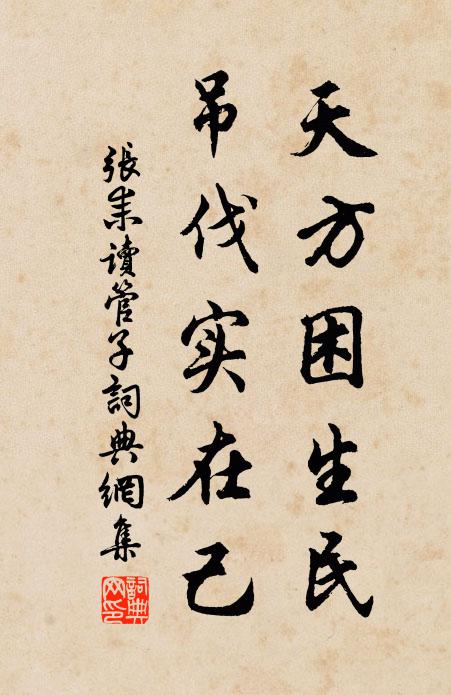 天方困生民
吊伐实在己
張耒讀管子詞典網集
詞典網印